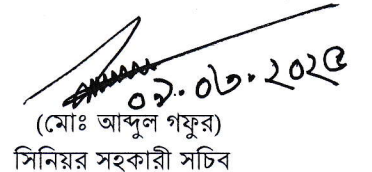 ০৯.০৩.২০২৫
(মোঃ আব্দুল গফুর)
সিনিয়র সহকারী সচিব